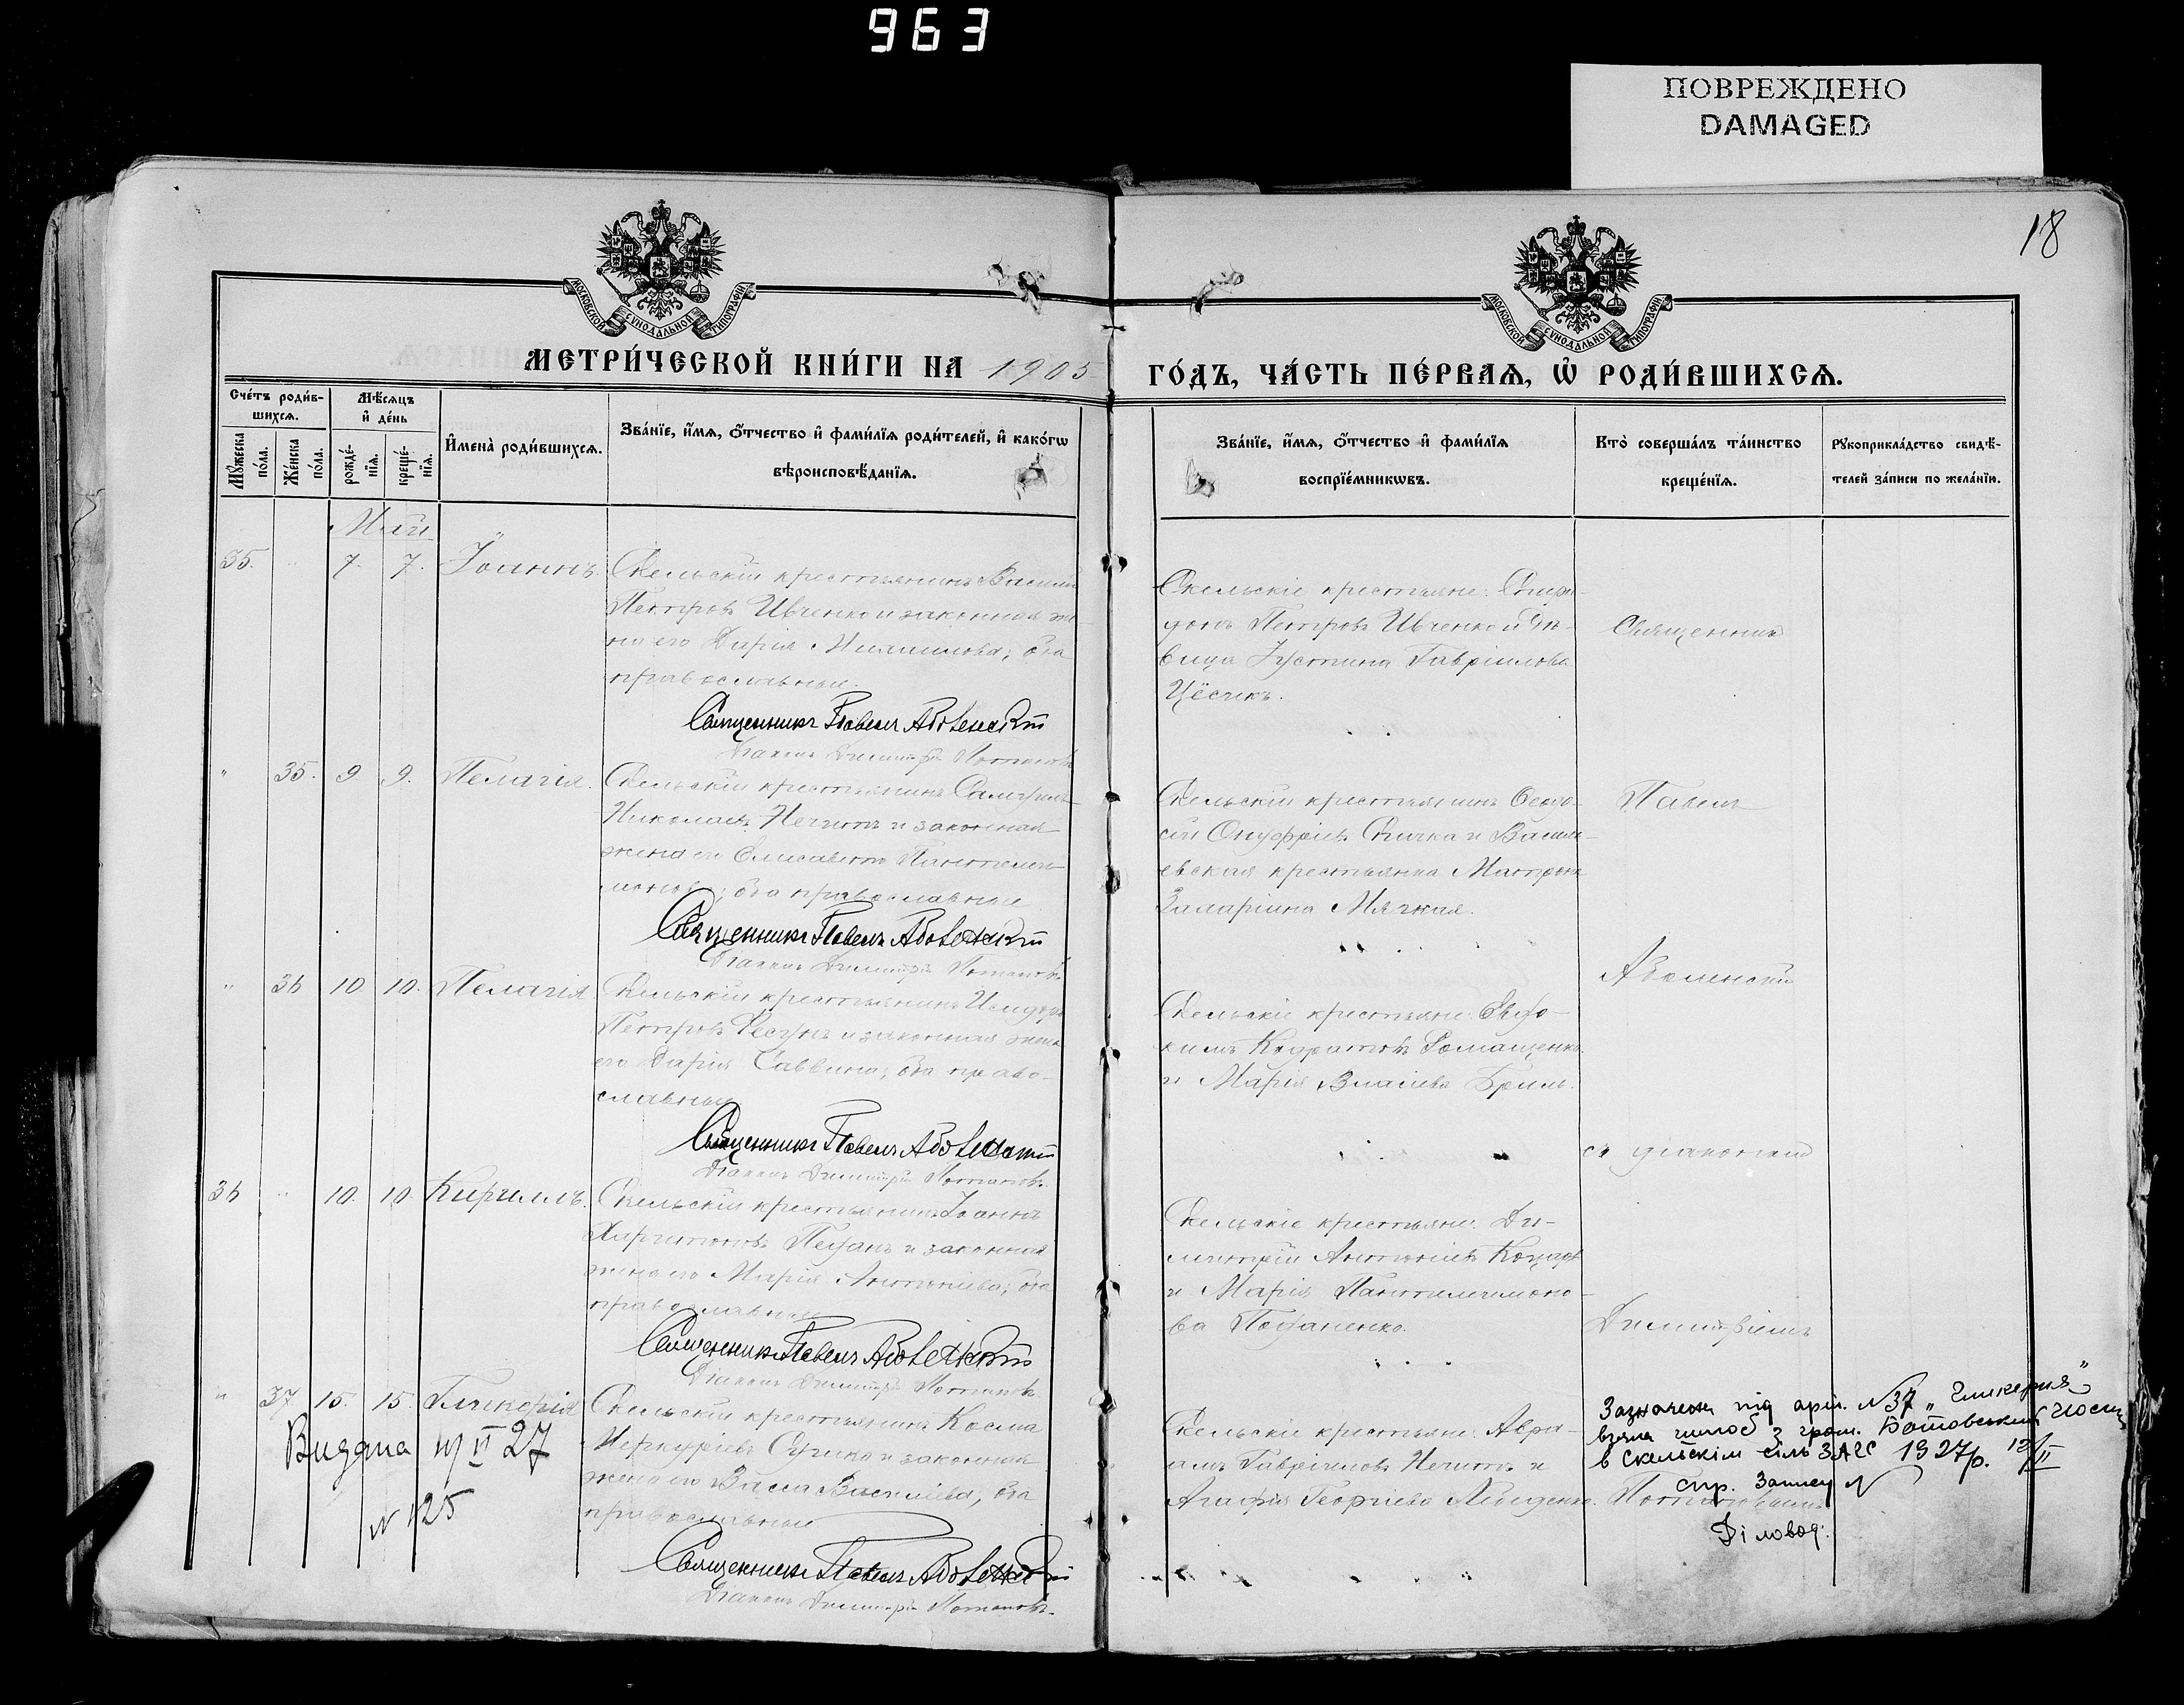 963
ПОВРЕЖДЕНО
DAMAGED
18
МОСКОВСКОЙ СѴНОДАЛЬНОЙ ТИПОГРАФІИ
МОСКОВСКОЙ СѴНОДАЛЬНОЙ ТИПОГРАФІИ
МЕТРИ́ЧЕСКОЙ КНИ́ГИ НА 1905
ГО́ДЪ, ЧА́СТЬ ПЕ́РВАѦ, Ѡ҆ РОДИ́ВШИХСѦ.
Сче́тъ роди́в-
шихся.
Мꙋ́жеска по́ла.
Же́нска по́ла.
Мѣ́сяцъ
и҆ де́нь
рожде́-
нїѧ.
креще́-
нїѧ.
И҆мена̀ роди́вшихсѧ.
Зва́нїе, и҆́мѧ, ѻ҆́тчество и҆ фами́лїѧ роди́телей, и҆ како́гѡ
вѣроисповѣ́данїѧ.
Зва́нїе, и҆́мѧ, ѻ҆́тчество и҆ фами́лїѧ
воспрїе́мникѡвъ.
Кто̀ соверша́лъ та́инство
креще́нїѧ.
Рꙋкоприкла́дство свидѣ́-
телей за́писи по жела́нїю.
Май
35. " 7. 7. Іоаннъ. Скельскій крестьянинъ Василій
Петровъ Ивченко и законная же-
на его Дарія; оба
православные.
Священникъ Павелъ Аболенскій
Діаконъ Димитрій Потаповъ
Скельскіе крестьяне: Спири-
донъ Петровъ Ивченко и дѣ-
вица Іустина Гавріилова
Священникъ
" 35. 9 9. Пелагія. Скельскій крестьянинъ
Николаевъ Нечитъ и законная
жена его Елисавета Пантелеи-
монова; оба православные
Священникъ Павелъ Аболенскій
Діаконъ Димитрій Потаповъ
Скельскій крестьянинъ Ѳеодо-
сій Онуфріевъ и Васили-
евская крестьянка Матрона
Захаріина Мягкая.
Павелъ
Аболенскій
" 36 10 10. Пелагія Скельскій крестьянинъ Исидоръ
Петровъ и законная жена
его Дарія Саввина; оба право-
славные
Священникъ Павелъ Аболенскій
Діаконъ Димитрій Потаповъ.
Скельскіе крестьяне: Евдо-
кимъ Ромащенко
и Марія Власіева Бриль.
съ діакономъ
36 " 10. 10. Кириллъ. Скельскій крестьянинъ Іоаннъ
Харитоновъ и законная
жена его Марія Антоніева; оба
православные
Священникъ Павелъ Аболенскій
Діаконъ Димитрій Потаповъ.
Скельскіе крестьяне: Ди-
митрій Антоніевъ
и Марія Пантелеимоно-
ва
Димитріемъ
" 37 15. 15. Гликерія Скельскій крестьянинъ Косма
Меркуріевъ и законная
жена его Васса Василіева; оба
православные
Священникъ Павелъ Аболенскій
Діаконъ Димитрій Потаповъ.
Видана II 27
N 125
Скельскіе крестьяне: Авра-
амъ Гавріиловъ Нечитъ и
Агафія Георгіева
Потаповымъ
Зазначена під арт. N 37 "Гликерия"
взяла шлюб з гром.
в Скельскім сіль ЗАГС 1927 р. 12/II
стр. запису N
Діловод: